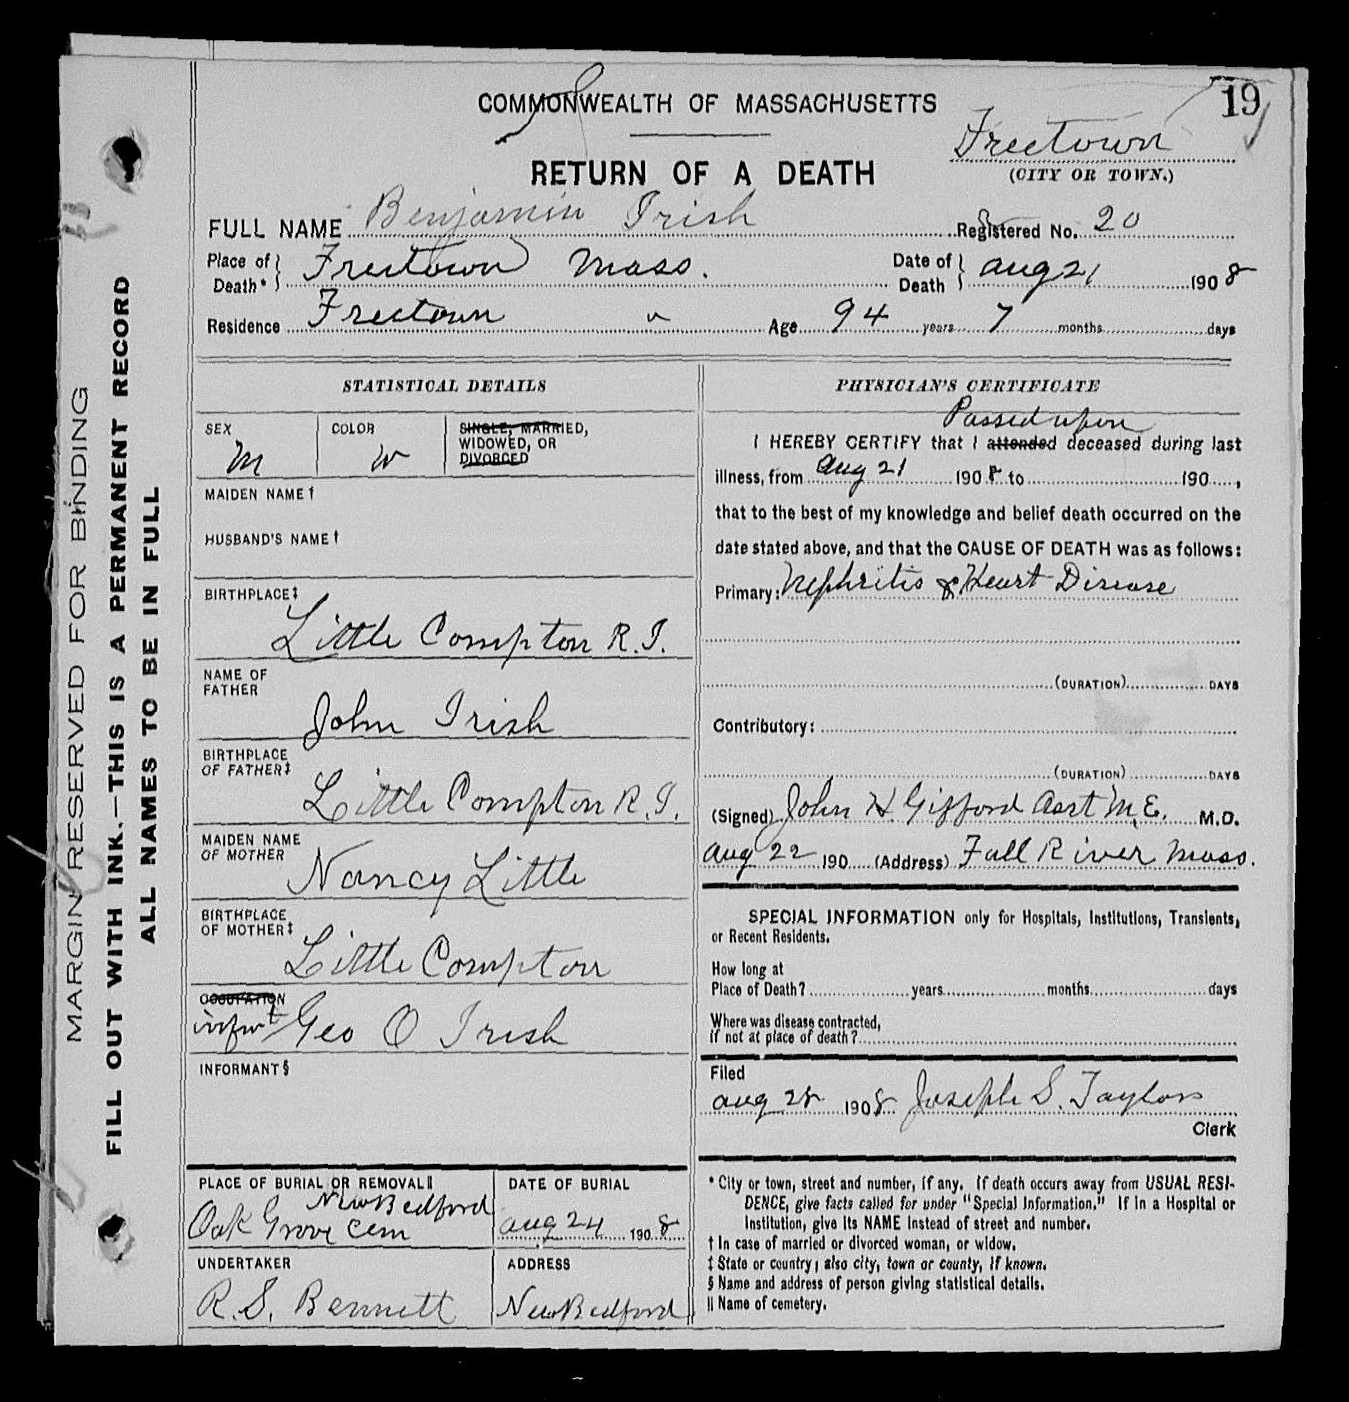 19
COMMONWEALTH OF MASSACHUSETTS
Freetown
(CITY OR TOWN.)
RETURN OF A DEATH
FULL NAME Benjamin Irish Registered No. 20
Place of Death* Freetown Mass. Date of Death Aug 21 1908
Residence Freetown " Age 94 years 7 months days
STATISTICAL DETAILS
SEX M COLOR W SINGLE, MARRIED, WIDOWED, OR DIVORCED
MAIDEN NAME †
HUSBAND'S NAME †
BIRTHPLACE ‡
Little Compton R.I.
NAME OF FATHER
John Irish
BIRTHPLACE OF FATHER ‡
Little Compton R.I.
MAIDEN NAME OF MOTHER
Nancy Little
BIRTHPLACE OF MOTHER ‡
Little Compton
OCCUPATION
infmt Geo O Irish
INFORMANT §
PLACE OF BURIAL OR REMOVAL ||
New Bedford
Oak Grove Cem
DATE OF BURIAL
Aug 24 1908
UNDERTAKER
R. S. Bennett
ADDRESS
New Bedford
PHYSICIAN'S CERTIFICATE
Passed upon
I HEREBY CERTIFY that I attended deceased during last
illness, from Aug 21 1908 to 190 ,
that to the best of my knowledge and belief death occurred on the
date stated above, and that the CAUSE OF DEATH was as follows:
Primary: Nephritis & Heart Disease
(DURATION) DAYS
Contributory:
(DURATION) DAYS
(Signed) John H. Gifford Asst M.E. M.D.
Aug 22 190 (Address) Fall River Mass.
SPECIAL INFORMATION only for Hospitals, Institutions, Transients,
or Recent Residents.
How long at
Place of Death? years months days
Where was disease contracted,
if not at place of death?
Filed
Aug 28 1908 Joseph S. Taylor
Clerk
* City or town, street and number, if any. If death occurs away from USUAL RESI-
DENCE, give facts called for under "Special Information." If in a Hospital or
Institution, give its NAME instead of street and number.
† In case of married or divorced woman, or widow.
‡ State or country; also city, town or county, if known.
§ Name and address of person giving statistical details.
|| Name of cemetery.
MARGIN RESERVED FOR BINDING
FILL OUT WITH INK.—THIS IS A PERMANENT RECORD
ALL NAMES TO BE IN FULL